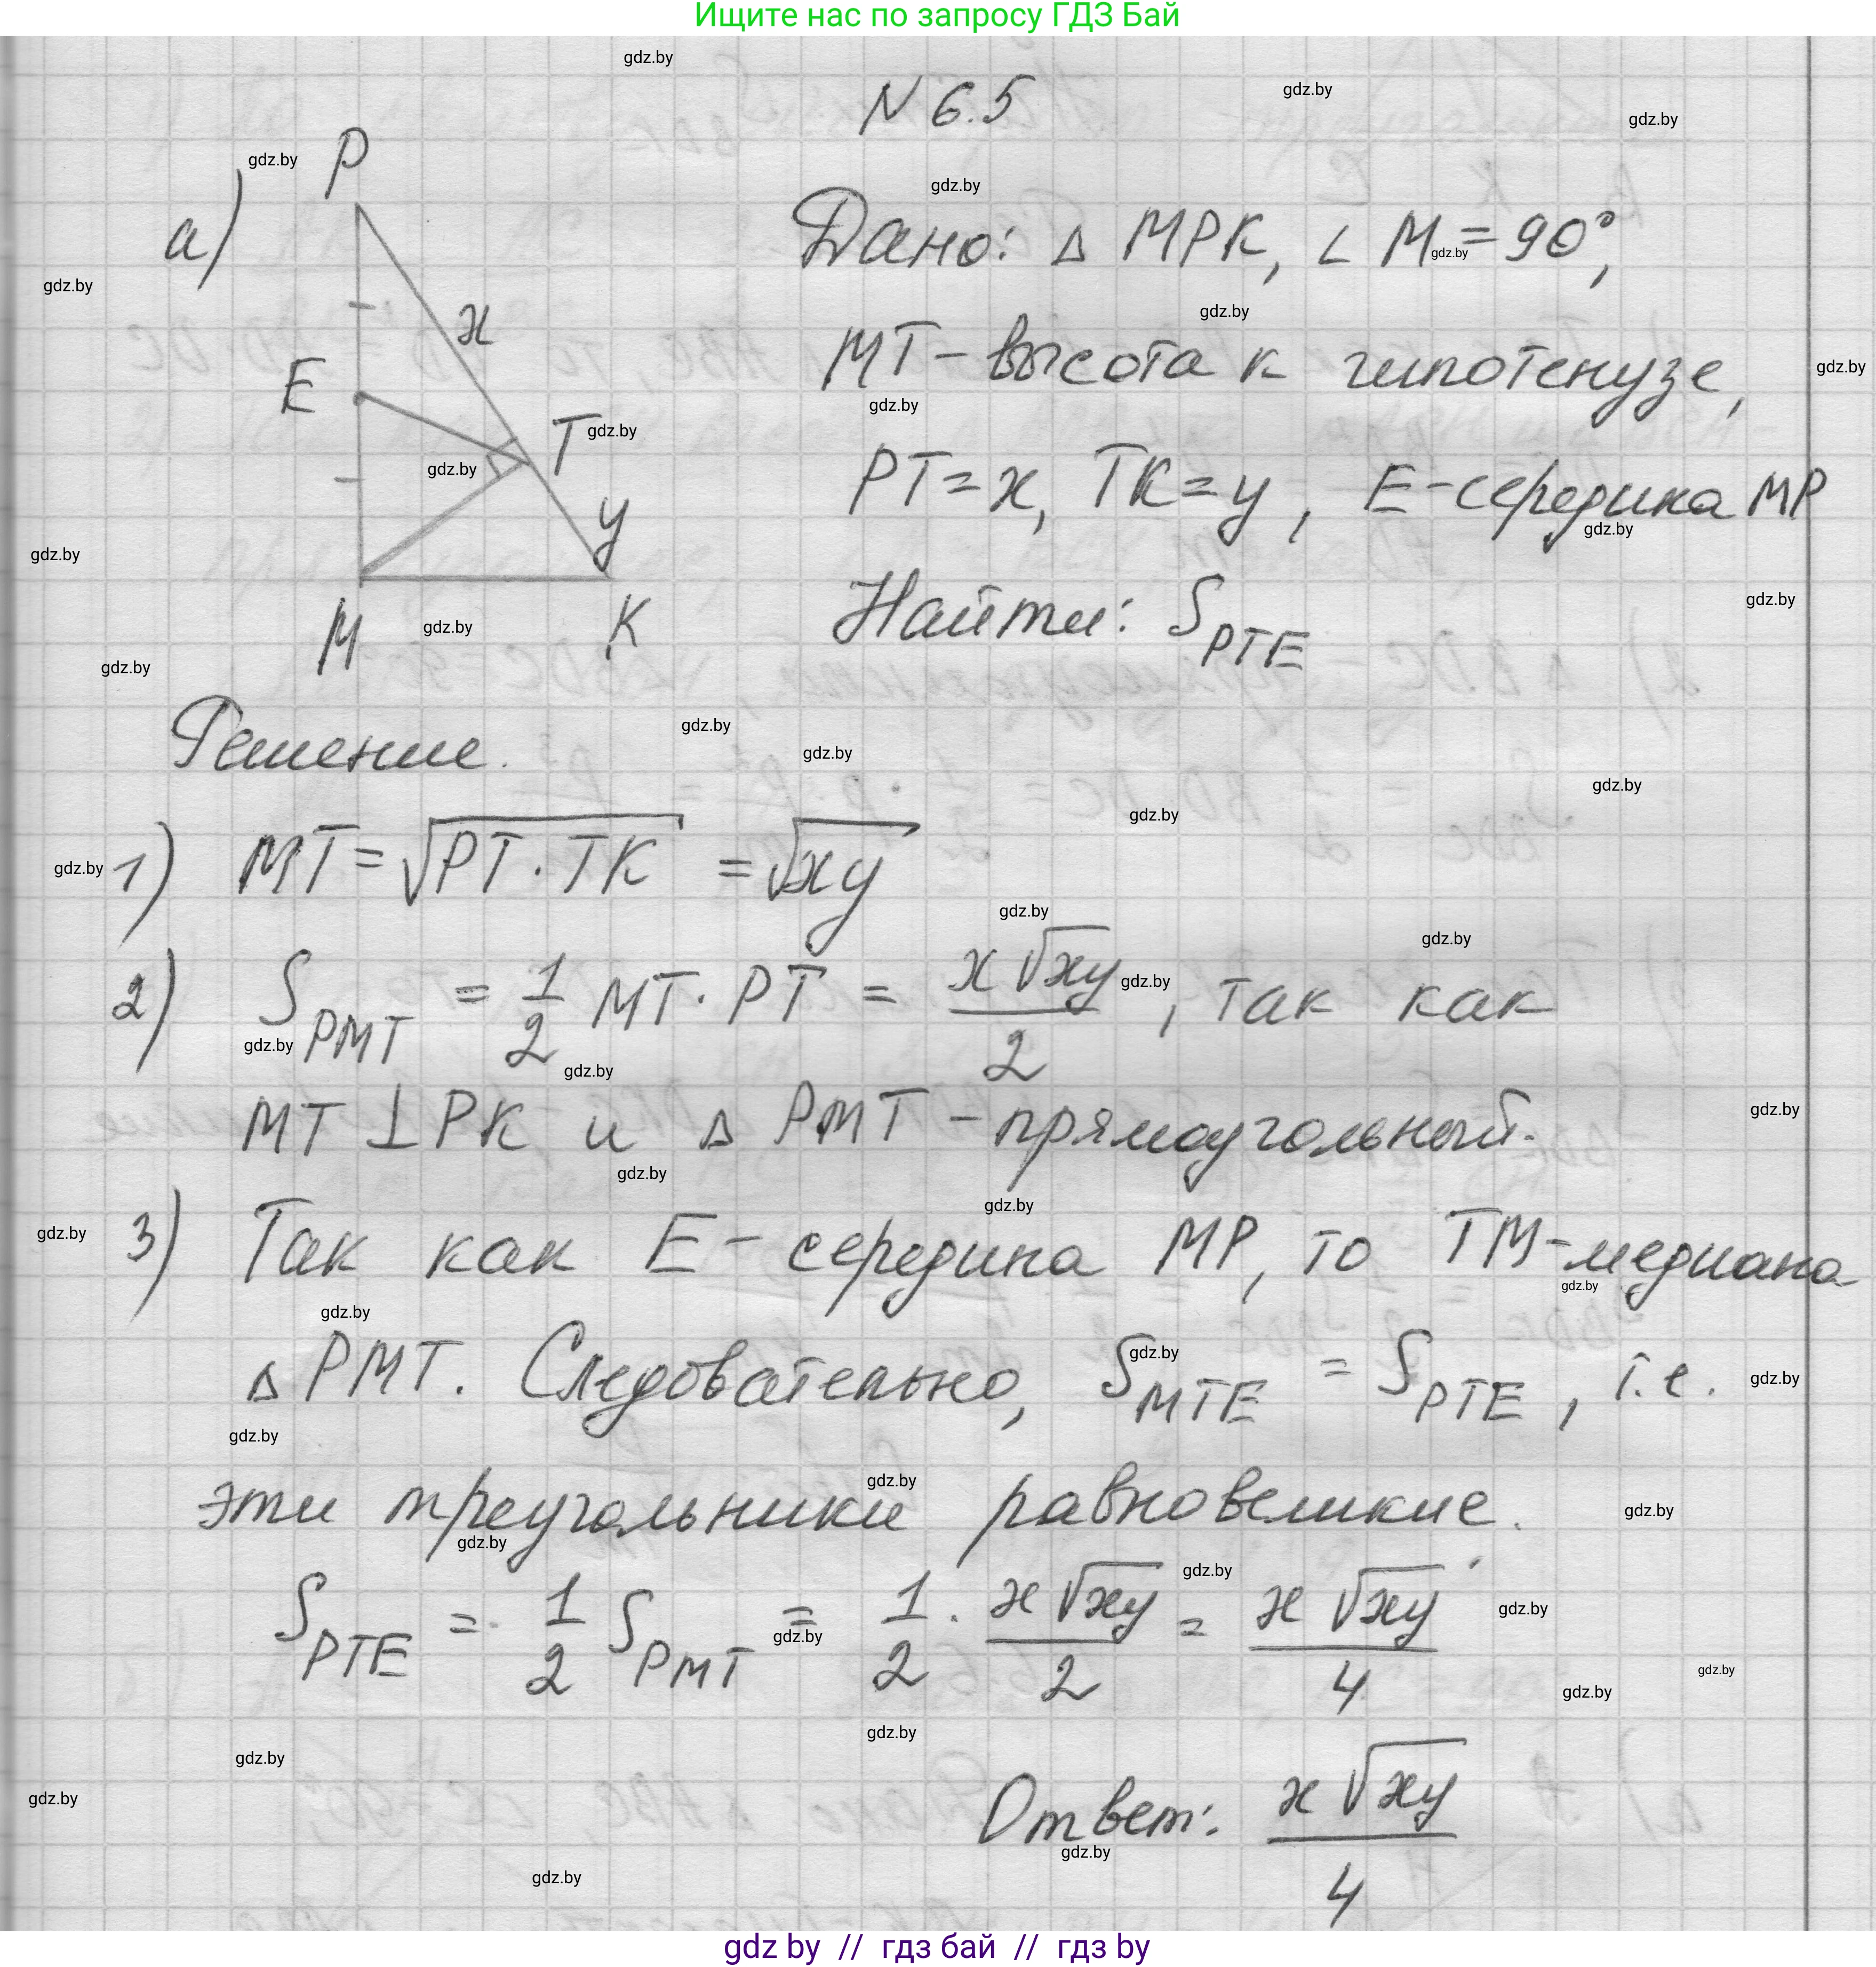 Ищите нас по запросу ГДЗ Бай
N 6.5
а)
P
x
E
T
y
M
K
Дано: △ MPK, ∠ M = 90°,
MT - высота к гипотенузе,
PT = x, TK = y, E - середина MP
Найти: S_PTE
Решение.
1) MT = √(PT · TK) = √(xy)
2) S_PMT = 1/2 MT · PT = x√(xy)/2, так как
MT ⊥ PK и △ PMT - прямоугольный.
3) Так как E - середина MP, то TM - медиана
△ PMT. Следовательно, S_MTE = S_PTE, т.е.
эти треугольники равновеликие.
S_PTE = 1/2 S_PMT = 1/2 · x√(xy)/2 = x√(xy)/4
Ответ: x√(xy)/4
gdz by // гдз бай // гдз by